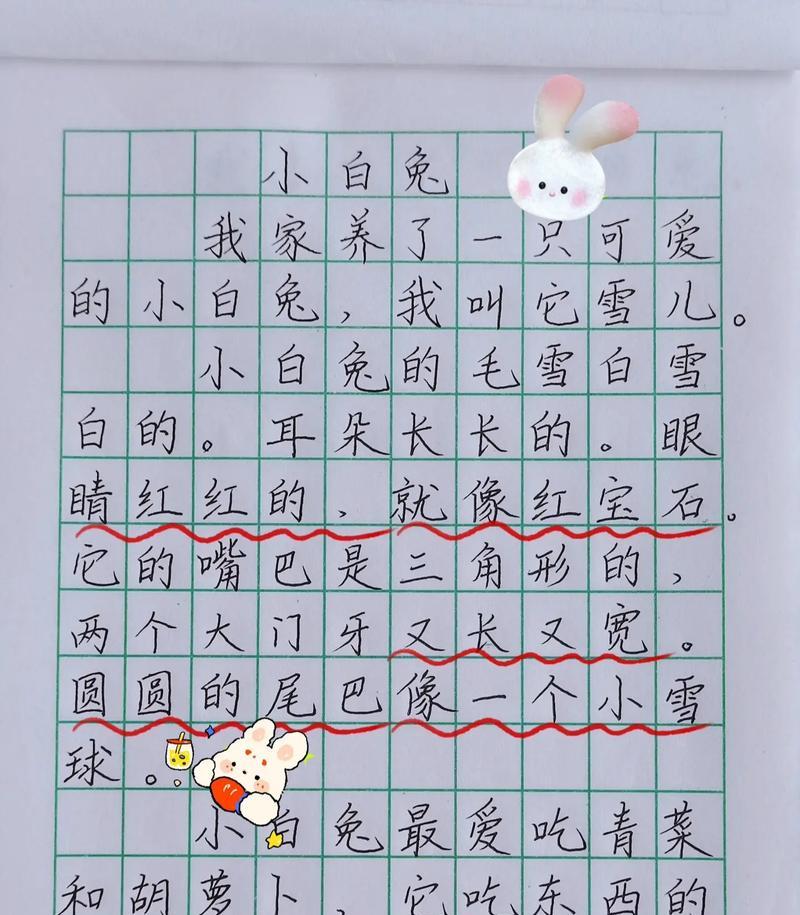 小白兔
我家养了一只可爱
的小白兔，我叫它雪儿。
小白兔的毛雪白雪
白的。耳朵长长的。眼
睛红红的，就像红宝石。
它的嘴巴是三角形的，
两个大门牙又长又宽。
圆圆的尾巴像一个小雪
球。
小白兔最爱吃青菜
和胡萝卜，它吃东西的